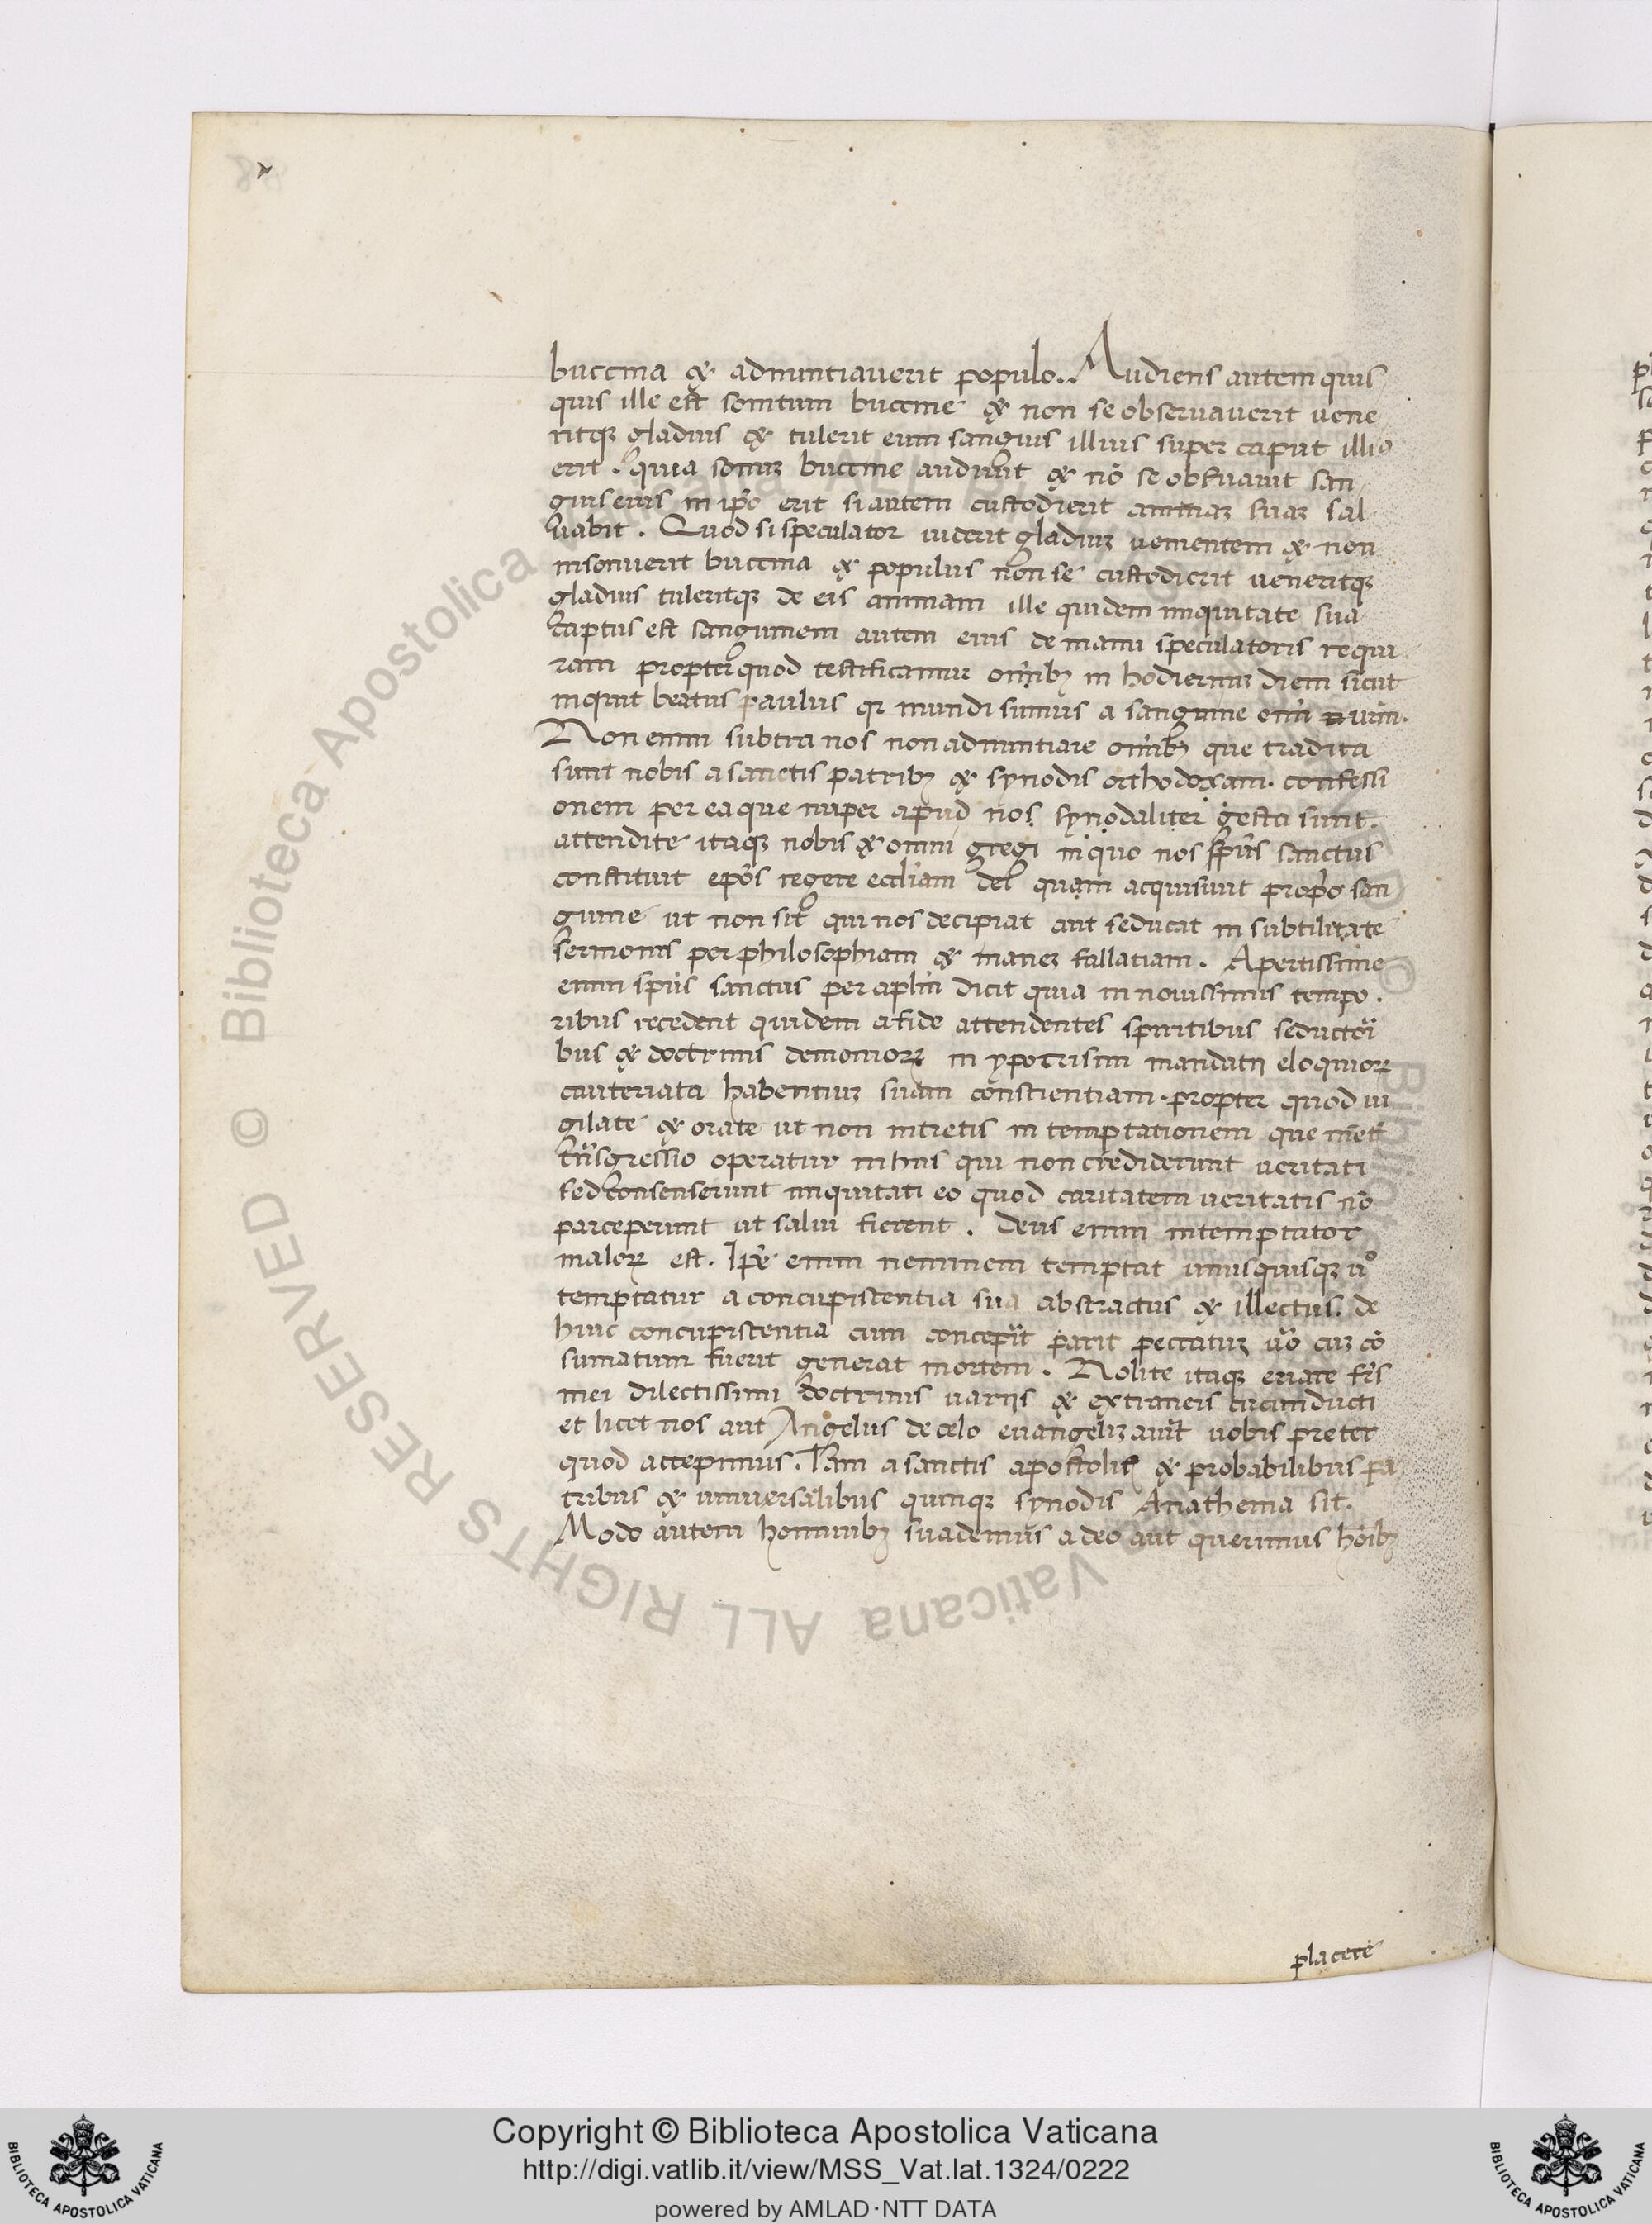 buccina & adnuntiauerit populo.. Audiens autem quis
quis ille est sonitum buccine & non se obseruauerit uene
ritq; gladius & tulerit eum sanguis illius super caput illiꝰ
erit. quia sonuȝ buccine audiuit & nō se obẜuauit san
guis eius in ip̄o erit si autem custodierit animaȝ suaȝ sal
uabit. Quod si speculator uiderit gladiuȝ uenientem & non
insonuerit buccina & populus non se custodierit ueneritq;
gladius tuleritq; de eis animam ille quidem iniquitate sua
captus est sanguinem autem eius de manu speculatoris requi
ram propter quod testificamur om̄ibȝ in hodiernuȝ diem sicut
inquit beatus paulus qꝛ mundi sumus a sanguine om̄i ur̄m.
Non enim subtra nos non adnuntiare om̄ibȝ que tradita
sunt nobis a sanctis patribȝ & synodis orthodoxam. confessi
onem per ea que nuper apud nos synodaliter gesta sunt.
attendite itaqȝ nobis & omni gregi in quo nos sp̄us sanctus
constituit ep̄os regere eccl̄iam dei quam acquisiuit prop̄o san
guine ut non sit qui nos decipiat aut seducat in subtilitate
sermonis per philosophiam & inaneȝ fallatiam. Apertissime
enim sp̄us sanctus per apl̄m dicit quia in nouissimis tempo.
ribus recedent quidem a fide attendentes spiritibus seductōi
bus & doctrinis demonioꝝ in ypocrisim mandatij eloquioꝝ
cauteriata habentiuȝ suam conscientiam. propter quod ui
gilate & orate ut non intretis in temptationem que
tr̄nsgressio operatur in hiis qui non crediderunt ueritati
sed consenserunt iniquitati eo quod caritatem ueritatis nō
parceperunt ut salui fierent. Deus enim intemptator
maloꝝ est. Ip̄e enim neminem temptat unusquisqȝ uº
temptatur a concupiscentia sua abstractus & illectus. de
hinc concupiscentia cum conceperit parit peccatuȝ ūo cuȝ cō
sumatum fuerit generat mortem. Nolite itaqȝ errare fr̄s
mei dilectissimi doctrinis uarijs & extraneis circunducti
et licet nos aut Angelus de celo euangelizauit̄ uobis preter
quod accepimus. Tam a sanctis apostolic̄ & probabilibus pa
tribus & uniuersalibus quinqȝ synodis Anathema sit.
Modo autem hominibȝ suademus a deo aut querimus hōibȝ
placere
Copyright © Biblioteca Apostolica Vaticana
http://digi.vatlib.it/view/MSS_Vat.lat.1324/0222
powered by AMLAD·NTT DATA